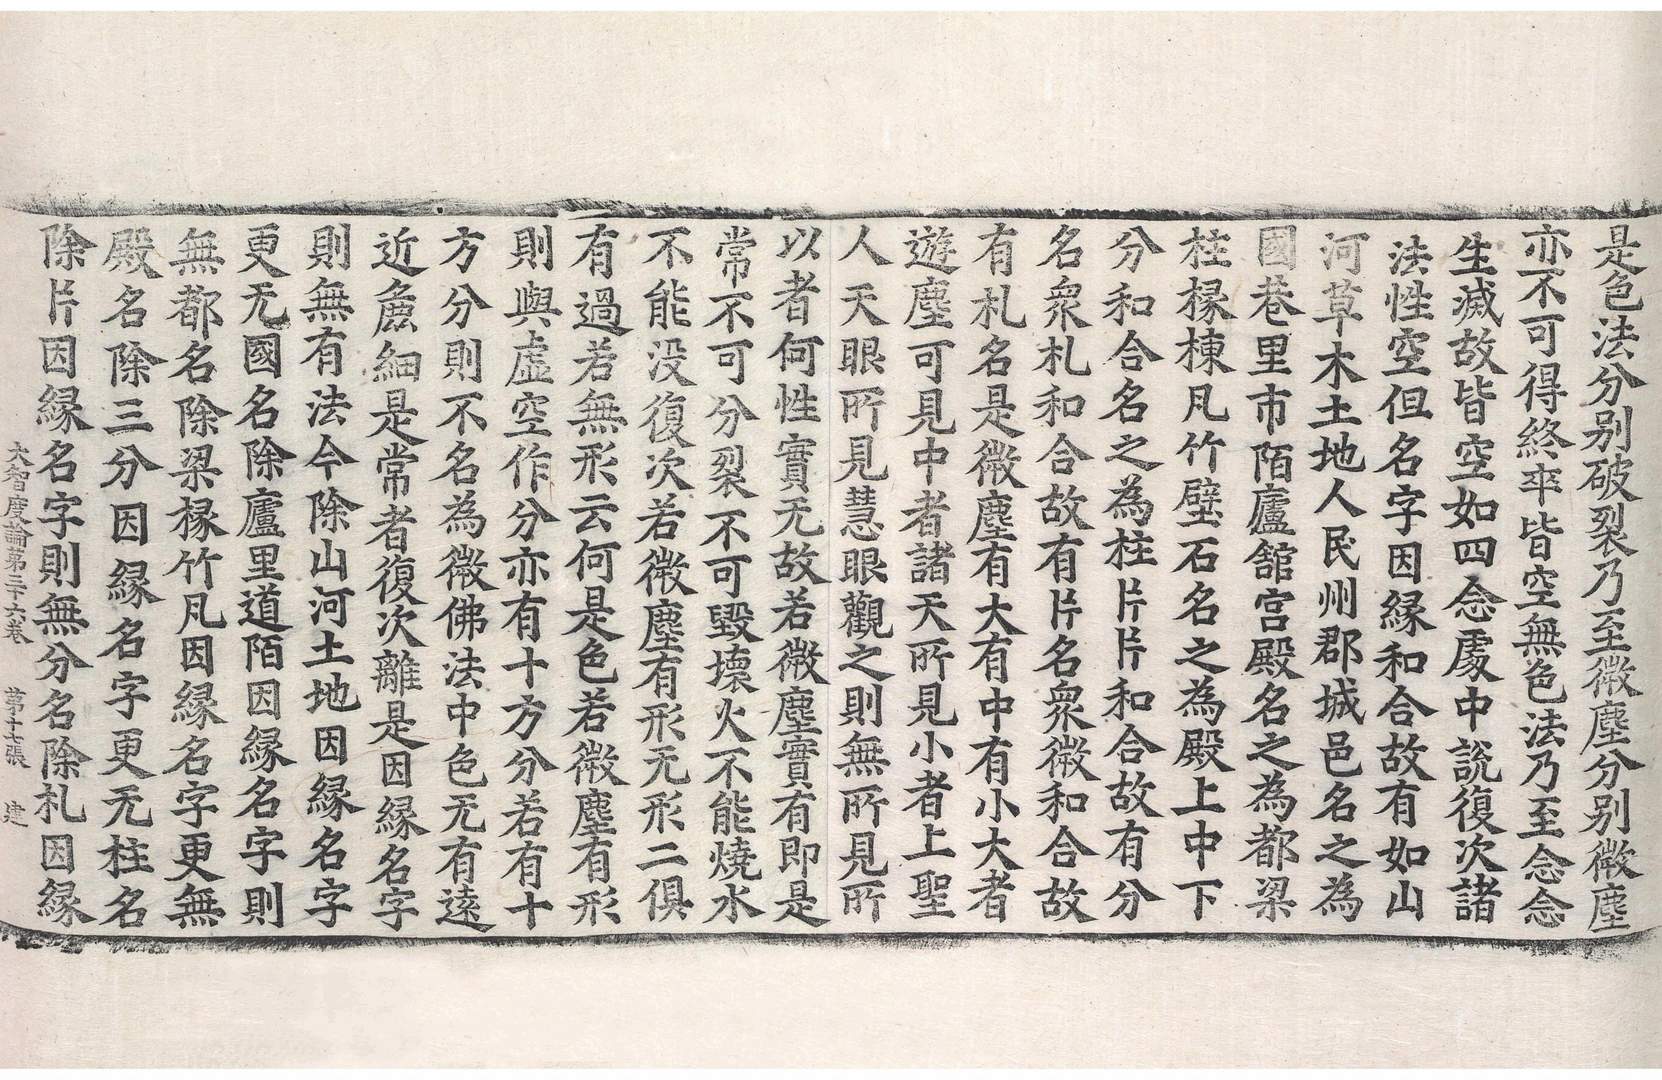 是色法分别破裂乃至微塵分别微塵
亦不可得終卒皆空無色法乃至念念
生滅故皆空如四念處中說復次諸
法性空但名字因縁和合故有如山
河草木土地人民州郡城邑名之為
國巷里市陌廬舘宮殿名之為都梁
柱椽棟瓦竹壁石名之為殿上中下
分和合名之為柱片片和合故有分
名衆札和合故有片名衆微和合故
有札名是微塵有大有中有小大者
遊塵可見中者諸天所見小者上聖
人天眼所見慧眼觀之則無所見所
以者何性實无故若微塵實有即是
常不可分裂不可毀壞火不能燒水
不能没復次若微塵有形无形二俱
有過若無形云何是色若微塵有形
則與虛空作分亦有十方分若有十
方分則不名為微佛法中色无有遠
近麁細是常者復次離是因縁名字
則無有法今除山河土地因縁名字
更无國名除廬里道陌因縁名字則
無都名除梁椽竹瓦因縁名字更無
殿名除三分因縁名字更无柱名
除片因縁名字則無分名除札因縁
大智度論第三十六卷 第十七張 建